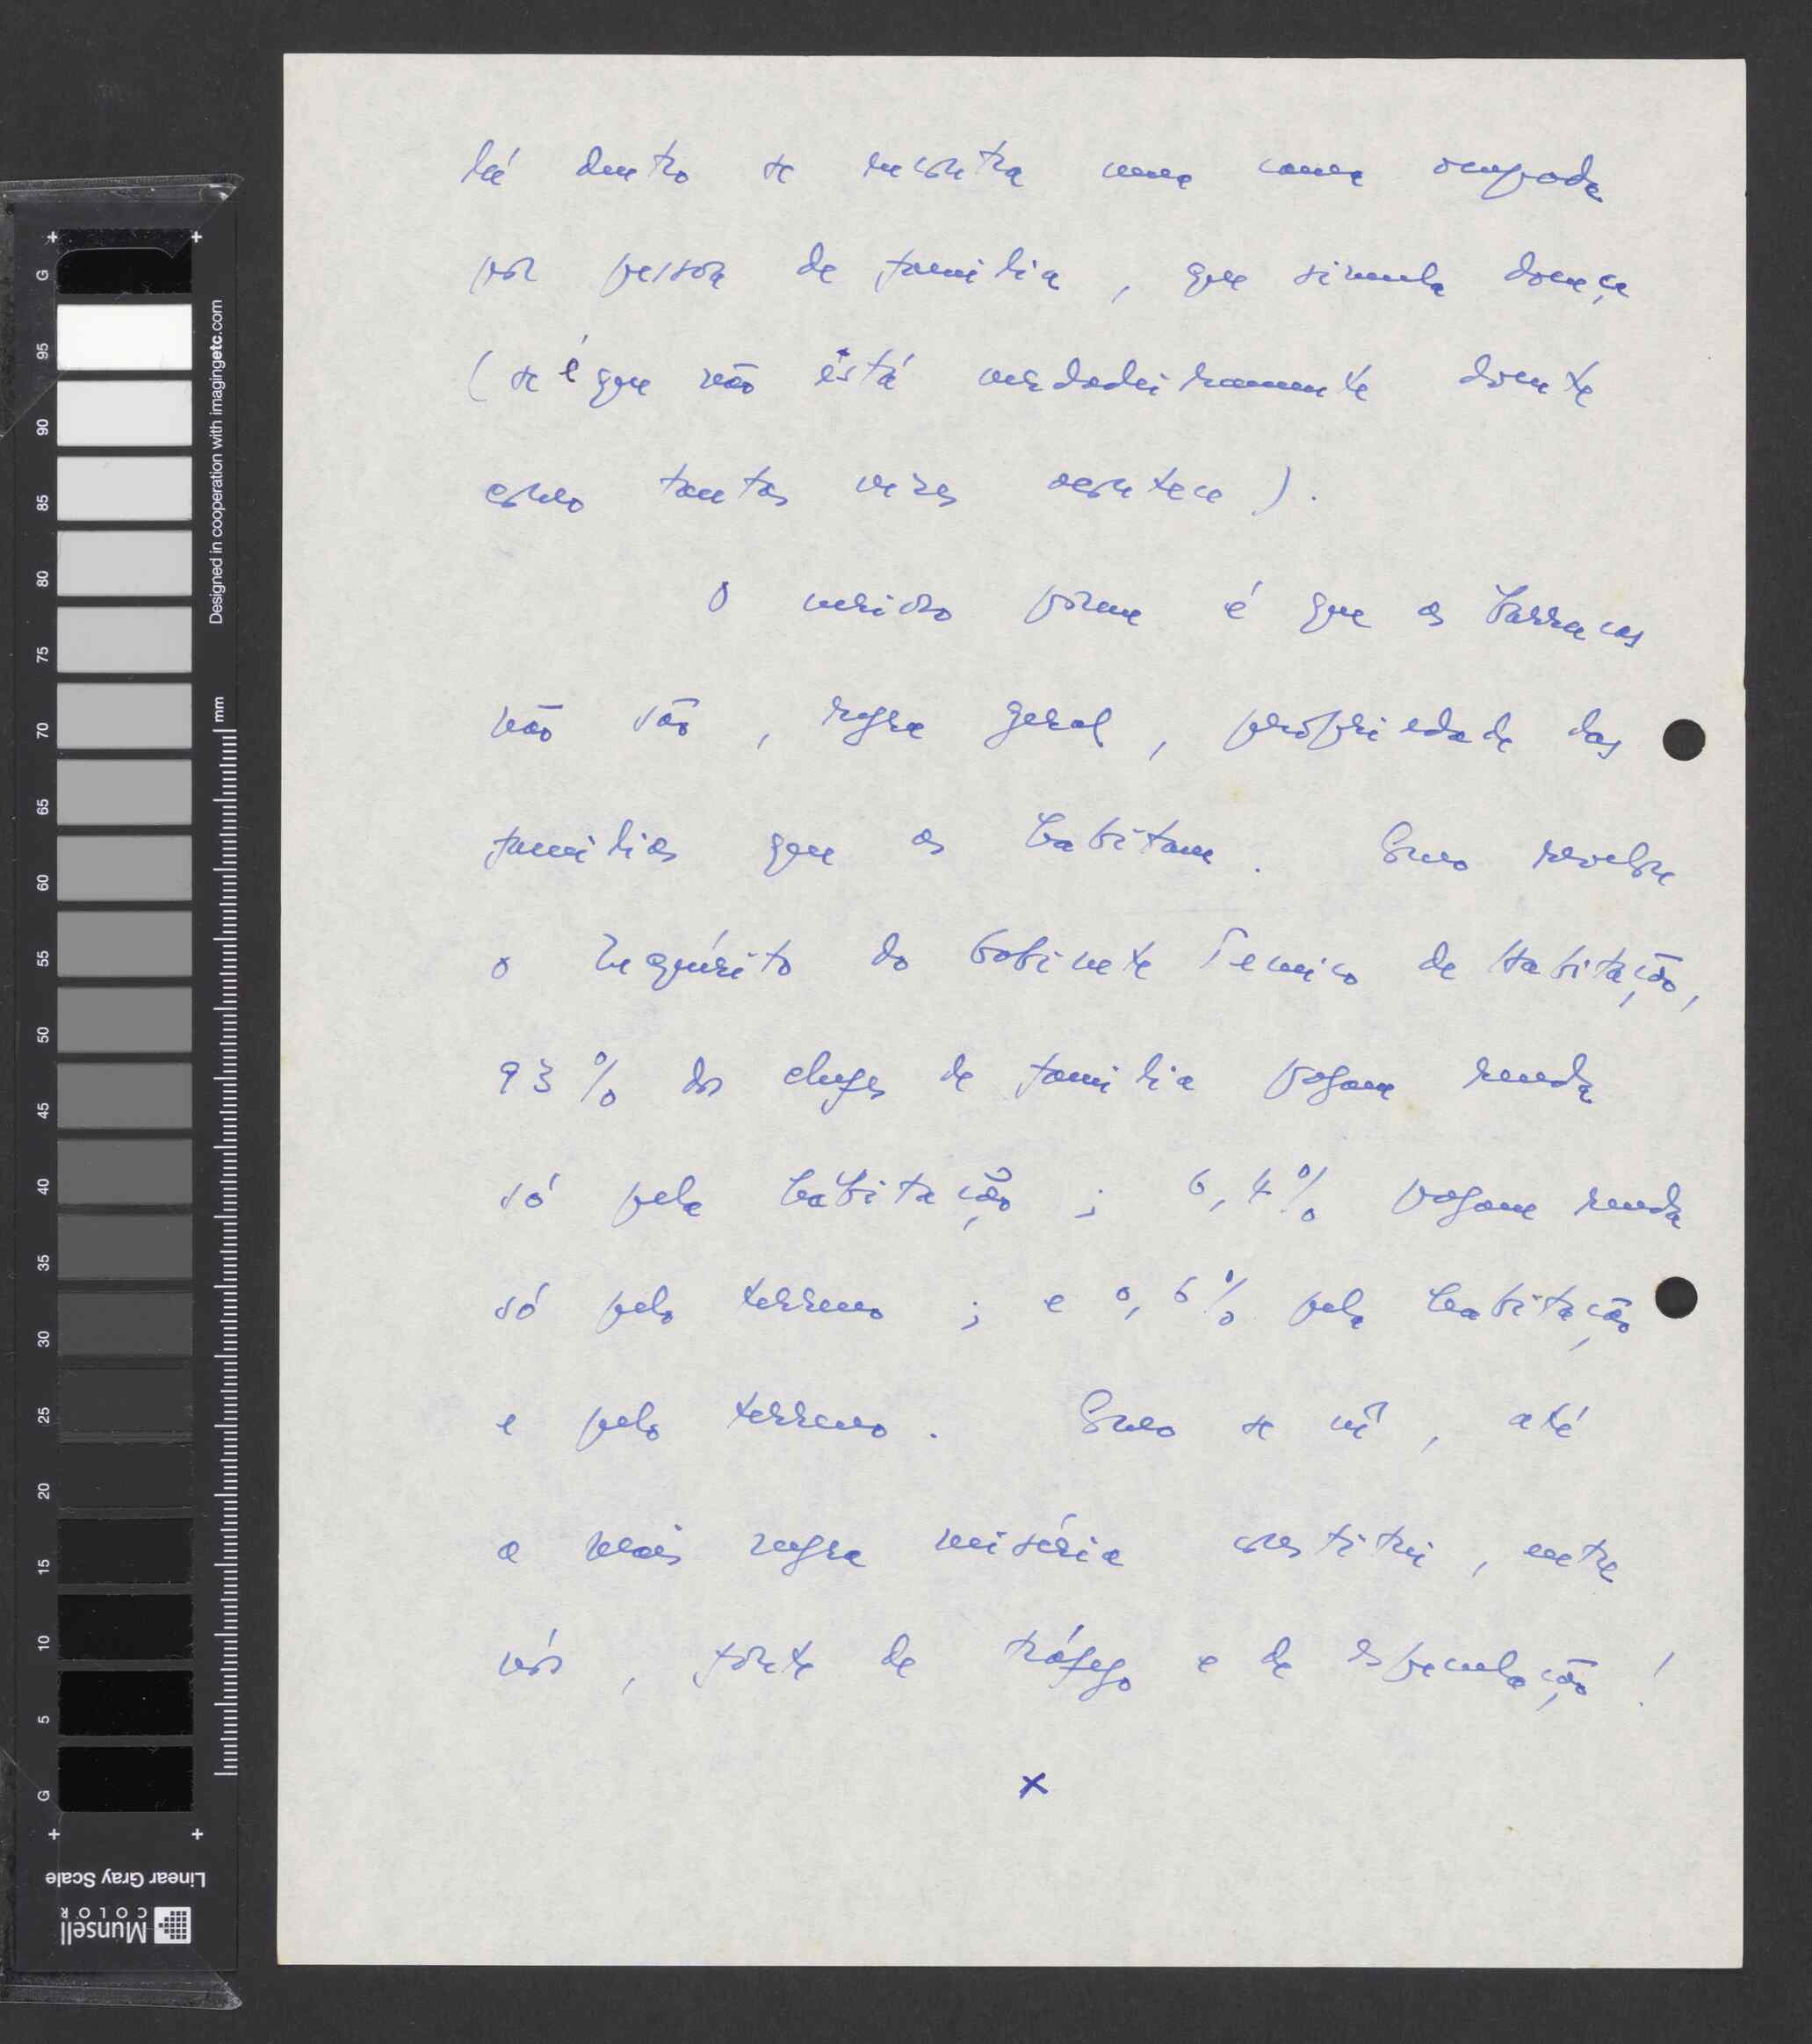 lá dentro se encontra uma cama ocupada
por pessoa de familia, que simula doença
(se é que não está verdadeiramente doente
como tantas vezes acontece).
O é que as barracas
não são, regra geral, propriedade das
familias que as habitam. Como revelou
o Inquérito do Gabinete Tecnico de Habitação,
93% dos chefes de familia pagam renda
só pela habitação; 6,4% pagam renda
só pelo terreno; e 0,6% pela habitação
e pelo terreno. Como se vê, até
a mais negra miséria constitui, entre
nós, fonte de tráfego e de especulação!
x
G
95
90
85
80
75
70
65
60
55
50
45
40
35
30
25
20
15
10
5
G
mm
Designed in cooperation with imagingetc.com
Linear Gray Scale
Munsell
COLOR